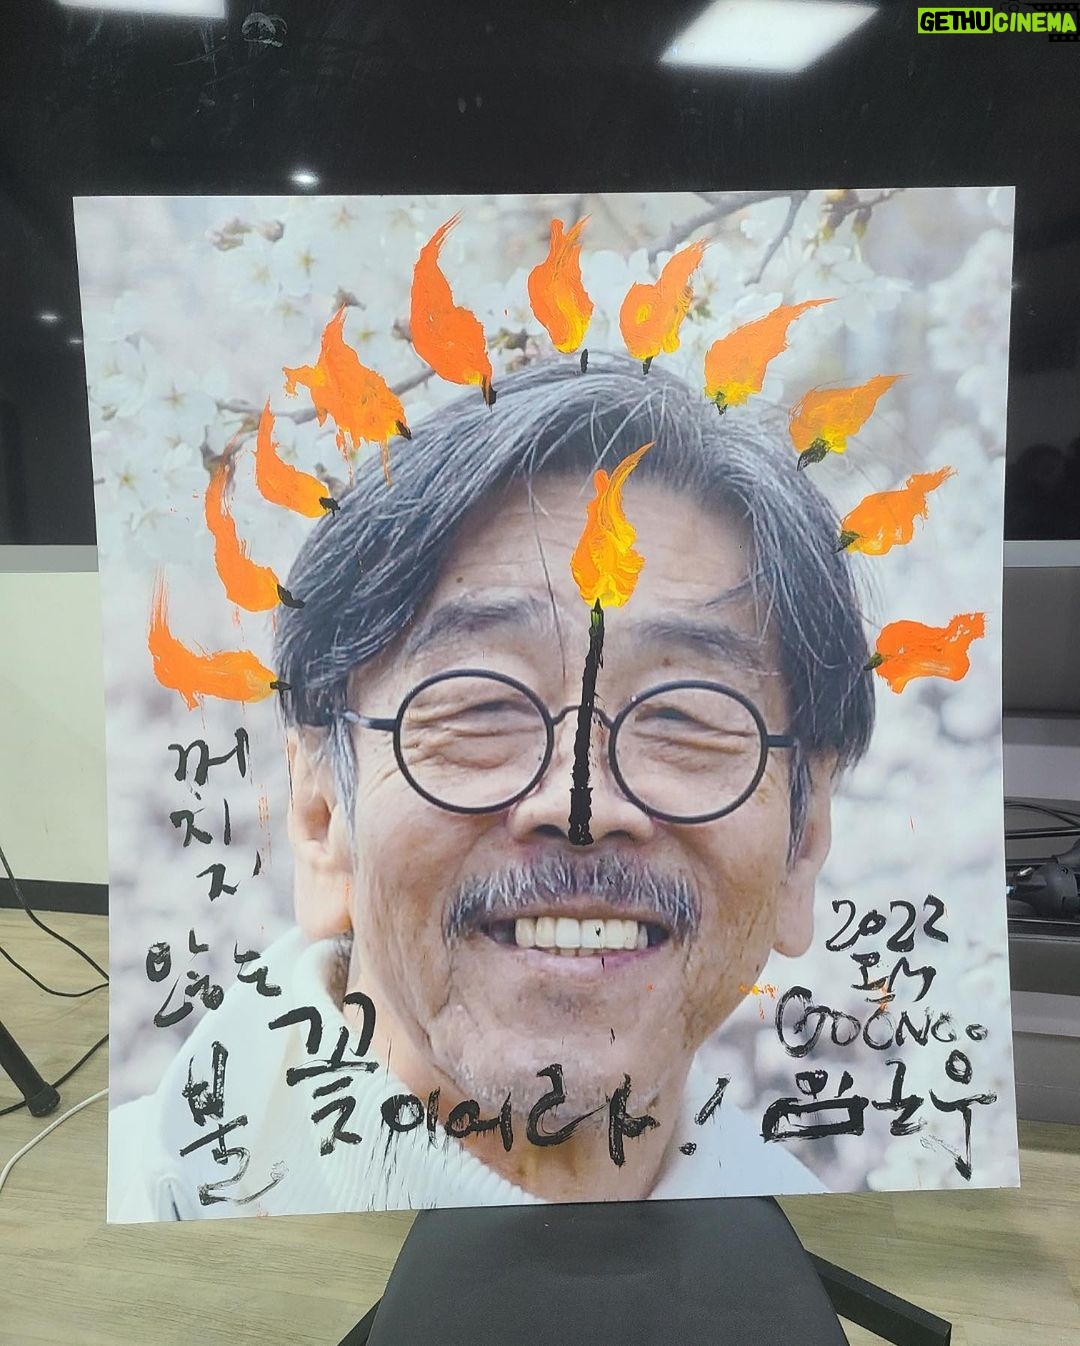 GETHUCINEMA
꺼지지
않는
불
꽃이어라!
2022
IM
GOONOO
임근우